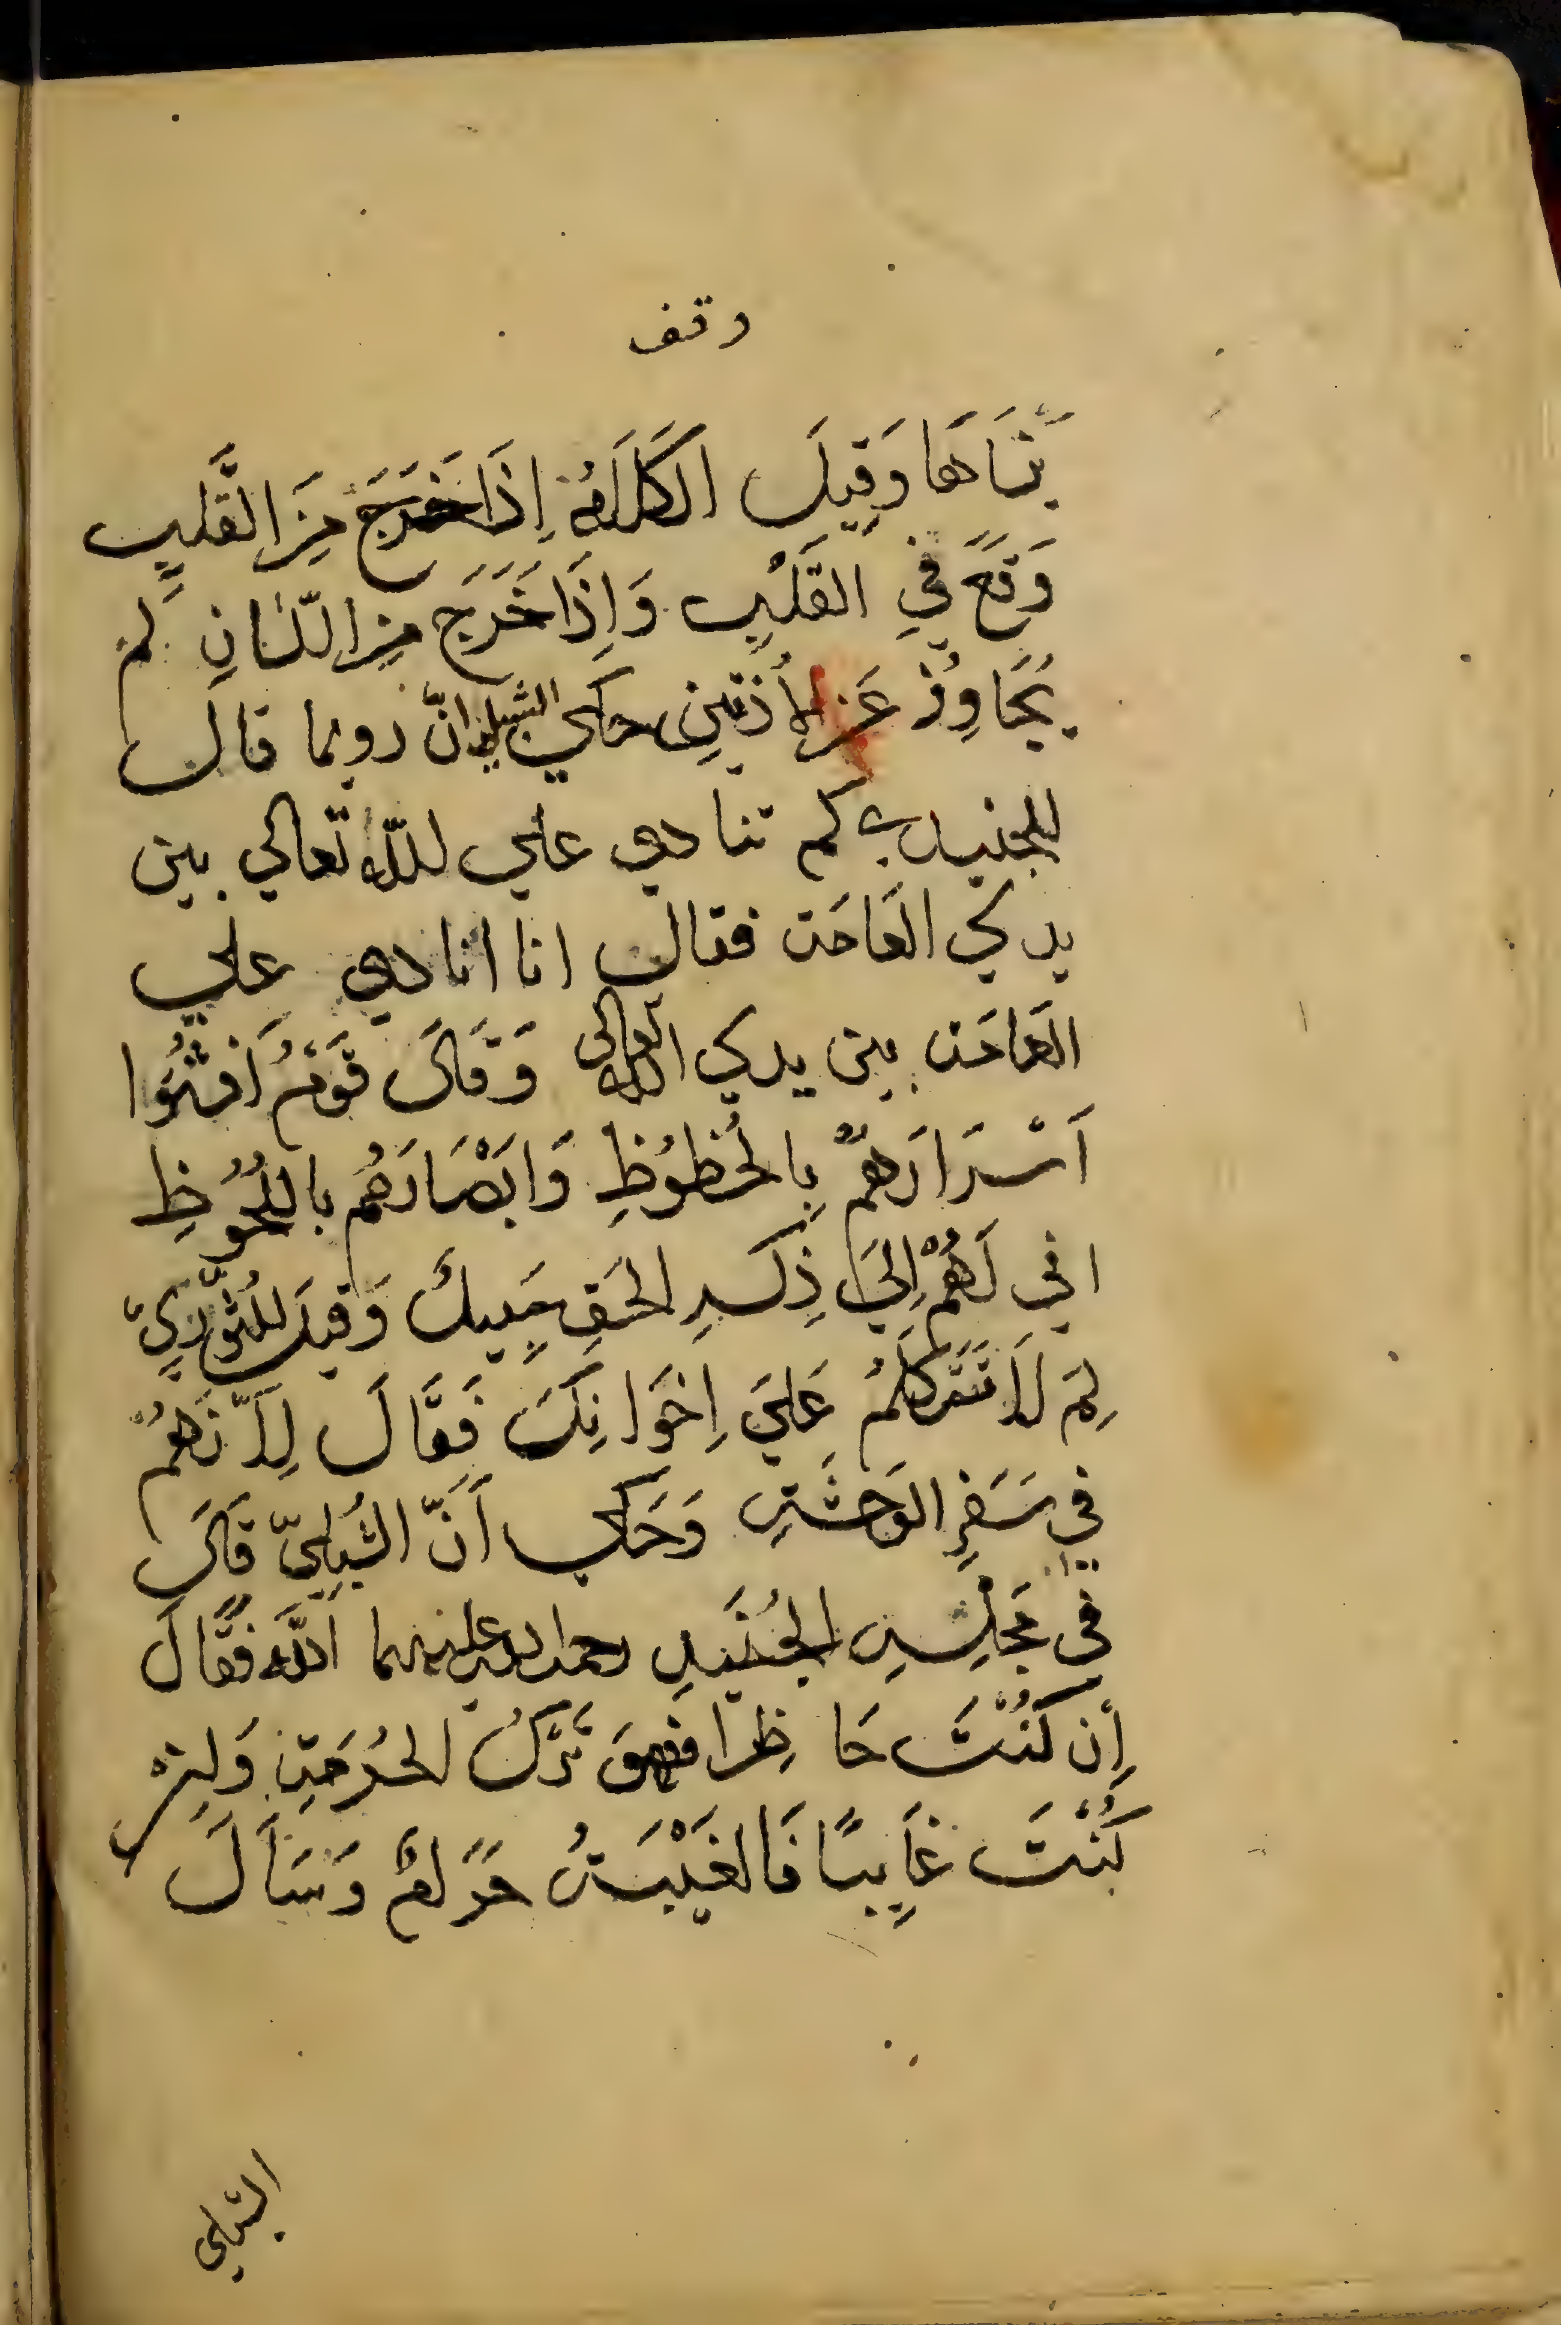 وقف
يَتَنَاهَا وَقِيلَ الكَلَامُ إِذَا خَرَجَ مِنَ القَلبِ
وَقَعَ فِي القَلْبِ وَإِذَا خَرَجَ مِن اللّسَانِ لم
يُجَاوِزْ عَنِ الأُذنَينِ حكي الشبلي انّ رويما قال
للجنيد كم تنادي علي الله تعالي بين
يدي العَامَة فقال انا انادي علي
العَامَة بين يدي الله تعالى وَقَالَ قَوْمٌ أَفْشَوُا
أَسْرَارَهمْ بِالحُظوُظِ وَابْصَارَهُم باللُّحُوظِ
افي لَهُمْ إِلَيَ ذِكرِ الحَقِ سَبِيلٌ وَقيلَ للثَّوْرِيّ
لِمَ لَا تَتَكَلَّمُ عَلَيَ اِخوَانِكَ فَقَالَ لِأَنَّهُمْ
في سَفَرِ الوَحْشَةِ وَحَكي أَنَّ الشِّبْلِيّ قَالَ
في مَجْلِسِ الجُنَيدِ رحمة الله عليهما اللَّه فَقَالَ
إِن كُنْتَ حَاظِرا فهوَ تَركُ الحُرمَةِ وَإِن
كُنْتَ غَايِبًا فَالغَيْبَةُ حَرَامٌ وَسَأَلَ
الشبلي